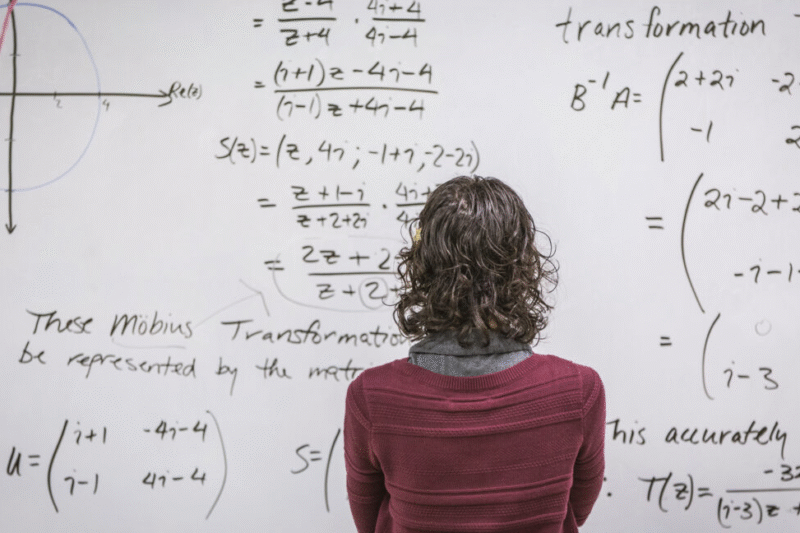 Re(z)
2 4
= z-4/z+4 · 4i+4/4i-4
= (i+1)z-4i-4/(i-1)z+4i-4
S(z)=(z, 4i; -1+i, -2-2i)
= z+1-i/z+2+2i ·
= 2z+2
z+2
These Möbius Transformation
be represented by the
u= (i+1 -4i-4
i-1 4i-4)
S= (
transformation
B⁻¹A= (2+2i -2
-1 2
= (2i-2+2
-i-1
= ( 0
i-3
his accurately
T(z)= -32/(i-3)z +